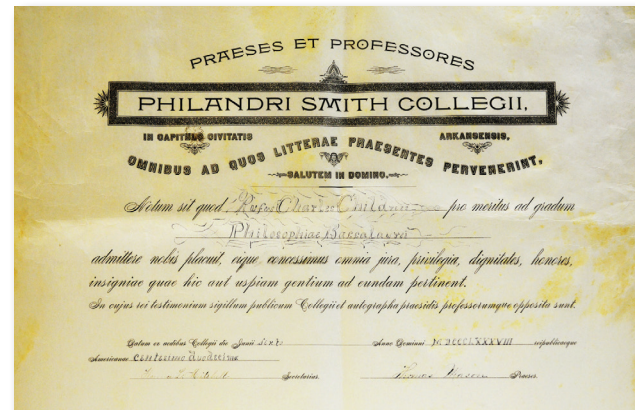 PRAESES ET PROFESSORES
PHILANDRI SMITH COLLEGII,
IN CAPITULO CIVITATIS ARKANSENSIS,
OMNIBUS AD QUOS LITTERAE PRAESENTES PERVENERINT,
SALUTEM IN DOMINO.
Notum sit quod Rufus Charles Childress pro meritus ad gradum
Philosophiae Baccalaurei
admittere nobis placuit, eique concessimus omnia jura, privilegia, dignitates, honores,
insigniae quae hic aut uspiam gentium ad eundem pertinent.
In cujus rei testimonium sigillum publicum Collegii et autographa praesidis professorumque opposita sunt.
Datum ex aedibus Collegii die Junii sexto Anno Domini MDCCCLXXXVIII reipublicaeque
Americanae centesimo duodecimo
Secretarius. Thomas Mason Praeses.